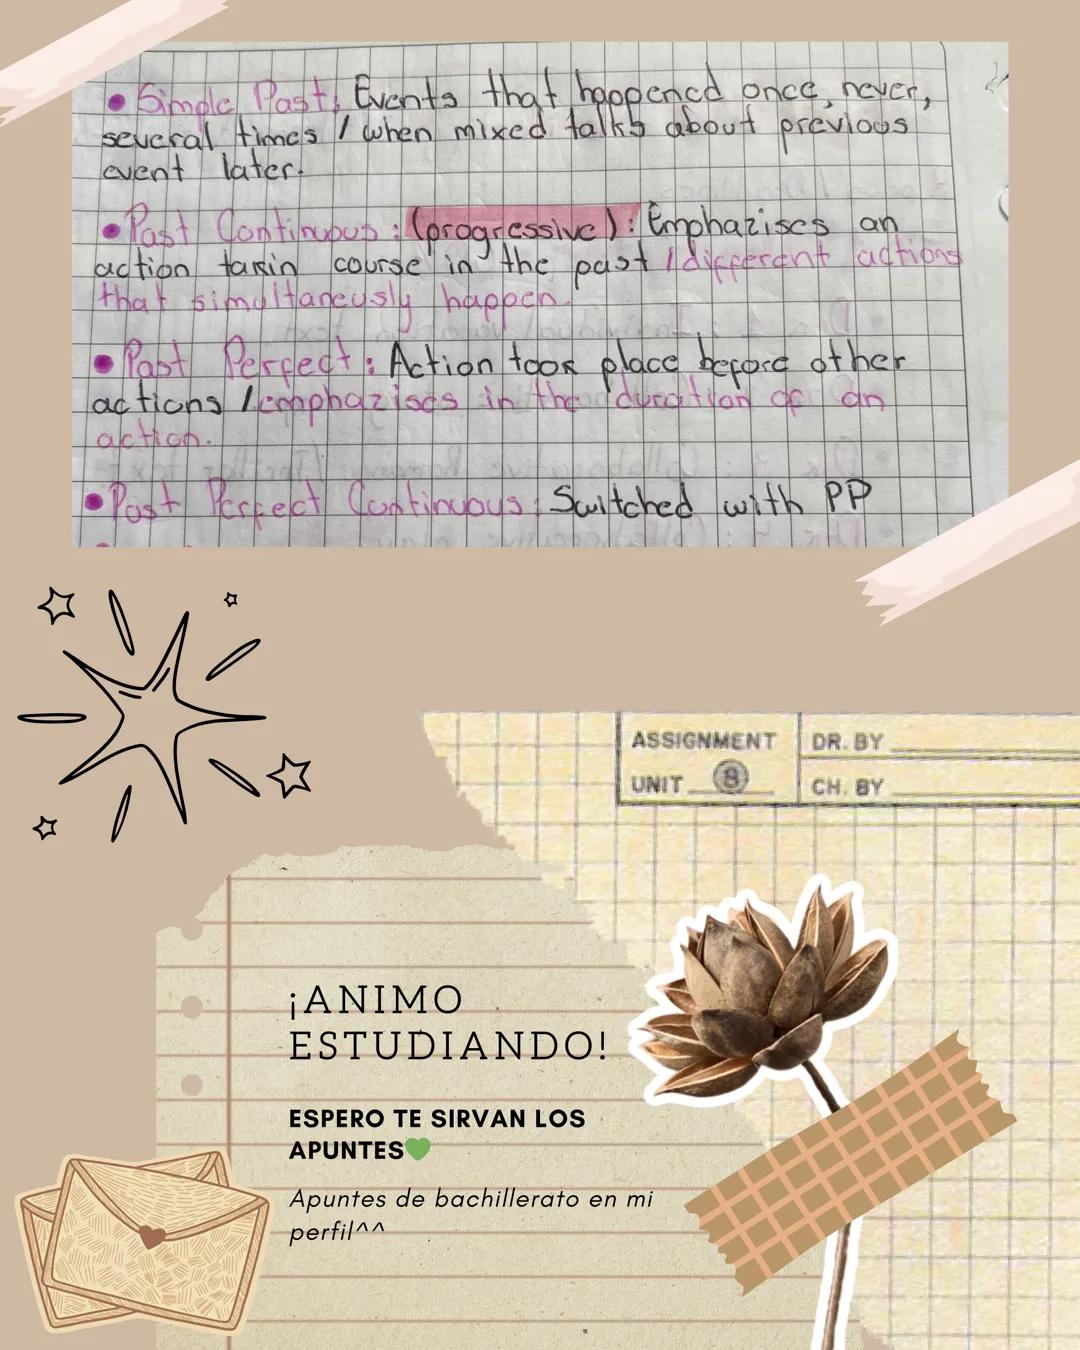 • Simple Past: Events that happened once, never,
several times / when mixed talks about previous
event later.
• Past Continuous: (progressive): Emphazises an
action takin course in the past / different actions
that simultaneusly happen.
• Past Perfect: Action took place before other
actions / emphazises in the duration of an
action.
• Past Perfect Continuous: Switched with PP
ASSIGNMENT
UNIT 8
DR. BY
CH. BY
¡ANIMO
ESTUDIANDO!
ESPERO TE SIRVAN LOS
APUNTES💚
Apuntes de bachillerato en mi
perfil^^